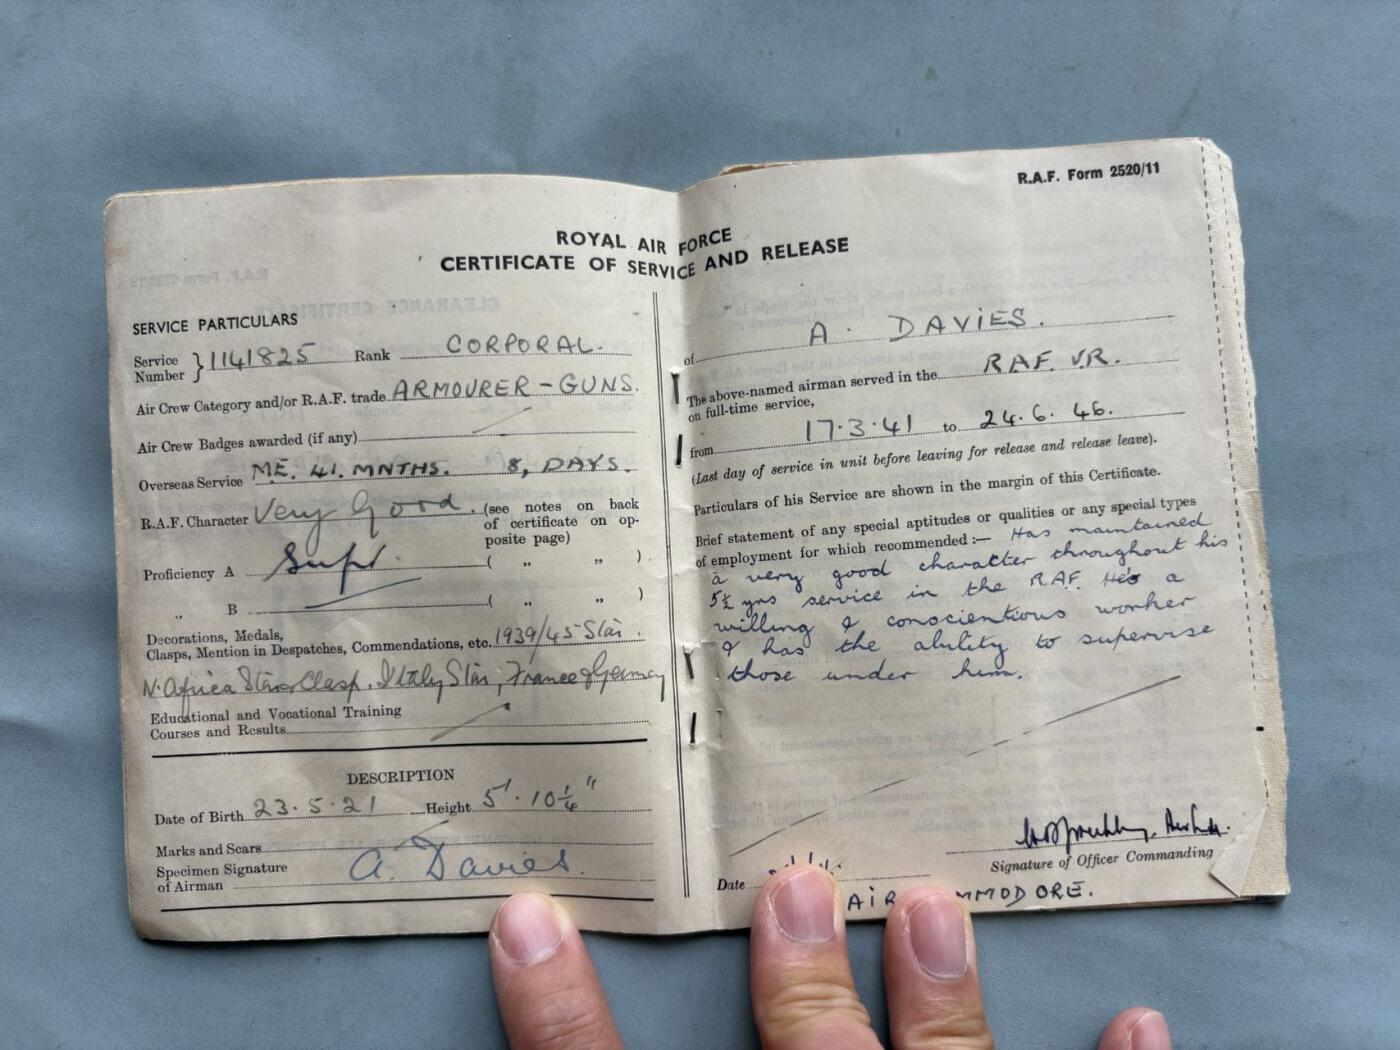 R.A.F. Form 2520/11
ROYAL AIR FORCE
CERTIFICATE OF SERVICE AND RELEASE
SERVICE PARTICULARS
Service Number } 1141825 Rank CORPORAL.
Air Crew Category and/or R.A.F. trade ARMOURER - GUNS.
Air Crew Badges awarded (if any)
Overseas Service M.E. 41. MNTHS. 8, DAYS.
R.A.F. Character Very Good. (see notes on back
of certificate on op-
posite page)
Proficiency A Supr. ( „ „ )
„ B ( „ „ )
Decorations, Medals,
Clasps, Mention in Despatches, Commendations, etc. 1939/45 Star.
N. Africa Star & Clasp, Italy Star, France & Germany
Educational and Vocational Training
Courses and Results
DESCRIPTION
Date of Birth 23.5.21 Height 5'. 10¼"
Marks and Scars
Specimen Signature
of Airman A. Davies.
of A. DAVIES.
The above-named airman served in the RAF. V.R.
on full-time service,
from 17.3.41 to 24.6.46.
(Last day of service in unit before leaving for release and release leave).
Particulars of his Service are shown in the margin of this Certificate.
Brief statement of any special aptitudes or qualities or any special types
of employment for which recommended :— Has maintained
a very good character throughout his
5½ yrs service in the R.A.F. He's a
willing & conscientious worker
& has the ability to supervise
those under him.
Signature of Officer Commanding
Date
AIR COMMODORE.